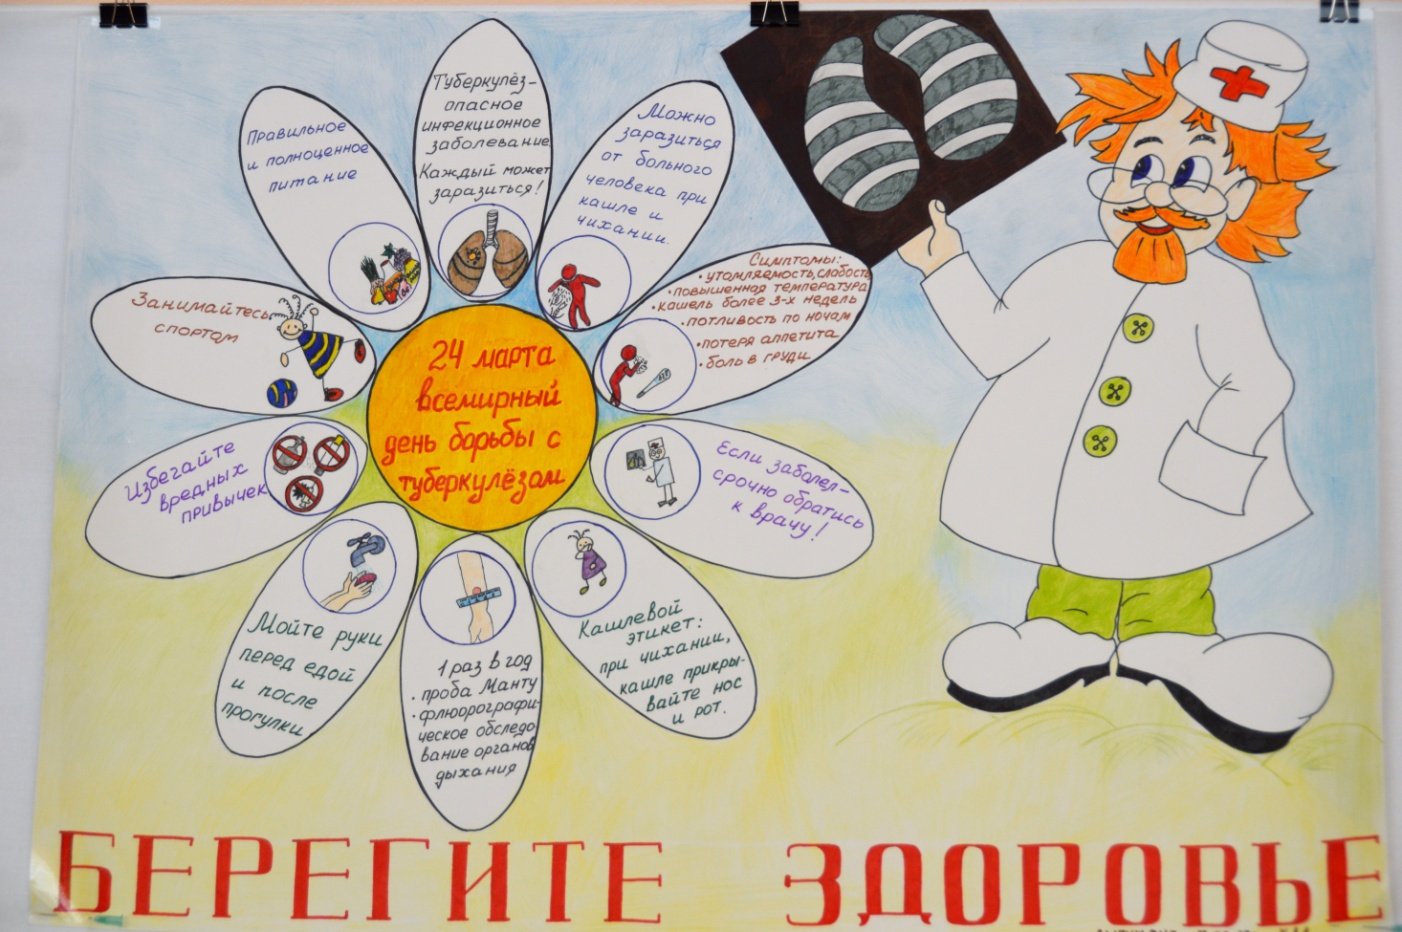 Туберкулёз-
опасное
инфекционное
заболевание
Каждый может
заразиться!
Можно
заразиться
от больного
человека при
кашле и
чихании.
Симптомы:
• утомляемость, слабость
• повышенная температура
• кашель более 3-х недель
• потливость по ночам
• потеря аппетита
• боль в груди
Если заболел-
срочно обратись
к врачу!
Кашлевой
этикет:
при чихании,
кашле прикры-
вайте нос
и рот.
1 раз в год
• проба Манту
• флюорографи-
ческое обследо
вание органов
дыхания
Мойте руки
перед едой
и после
прогулки
Избегайте
вредных
привычек
Занимайтесь
спортом
Правильное
и полноценное
питание
24 марта
всемирный
день борьбы с
туберкулёзом
БЕРЕГИТЕ ЗДОРОВЬЕ